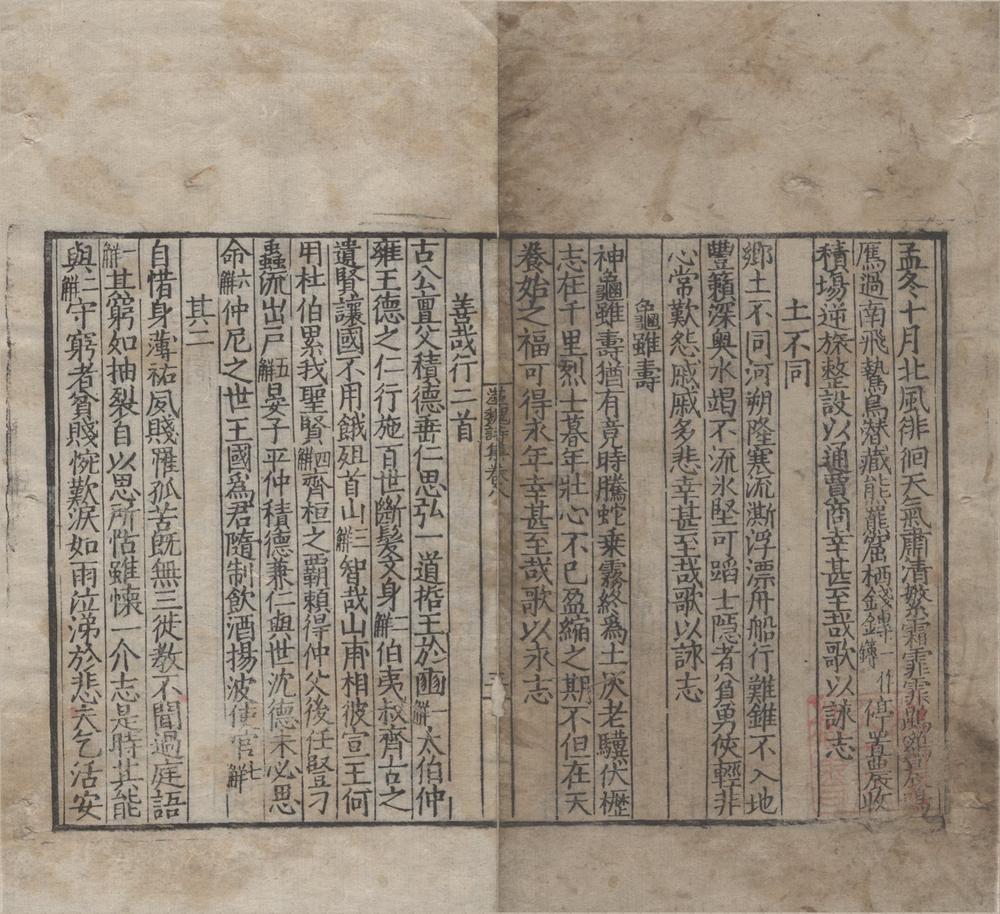 孟冬十月北風徘徊天氣肅清繁霜霏霏鵾雞晨鳴
鴈過南飛鷙鳥潛藏熊羆窟栖錢鎛一作鎛停置農收
積場逆旅整設以通賈商幸甚至哉歌以詠志
土不同
鄉土不同河朔隆寒流澌浮漂舟船行難錐不入地
豐籟深奧水竭不流氷堅可蹈士隱者貧勇俠輕非
心常歎怨戚戚多悲幸甚至哉歌以詠志
龜雖壽
神龜雖壽猶有竟時騰蛇乗霧終爲土灰老驥伏櫪
志在千里烈士暮年壯心不已盈縮之期不但在天
養始之福可得永年幸甚至哉歌以永志
漢魏詩集卷八
善哉行二首
古公亶父積德垂仁思弘一道哲王於豳一解太伯仲
雍王德之仁行施百世斷髮文身二解伯夷叔齊古之
遺賢讓國不用餓殂首山三解智哉山甫相彼宣王何
用杜伯累我聖賢四解齊桓之霸賴得仲父後任豎刁
蟲流出戶五解晏子平仲積德兼仁與世沈德未必思
命六解仲尼之世王國爲君隨制飲酒揚波使官七解
其二
自惜身薄祜夙賤罹孤苦旣無三徙教不聞過庭語
一解其窮如抽裂自以思所怙雖懷一介志是時其能
與二解守窮者貧賤惋歎淚如雨泣涕於悲夫乞活安